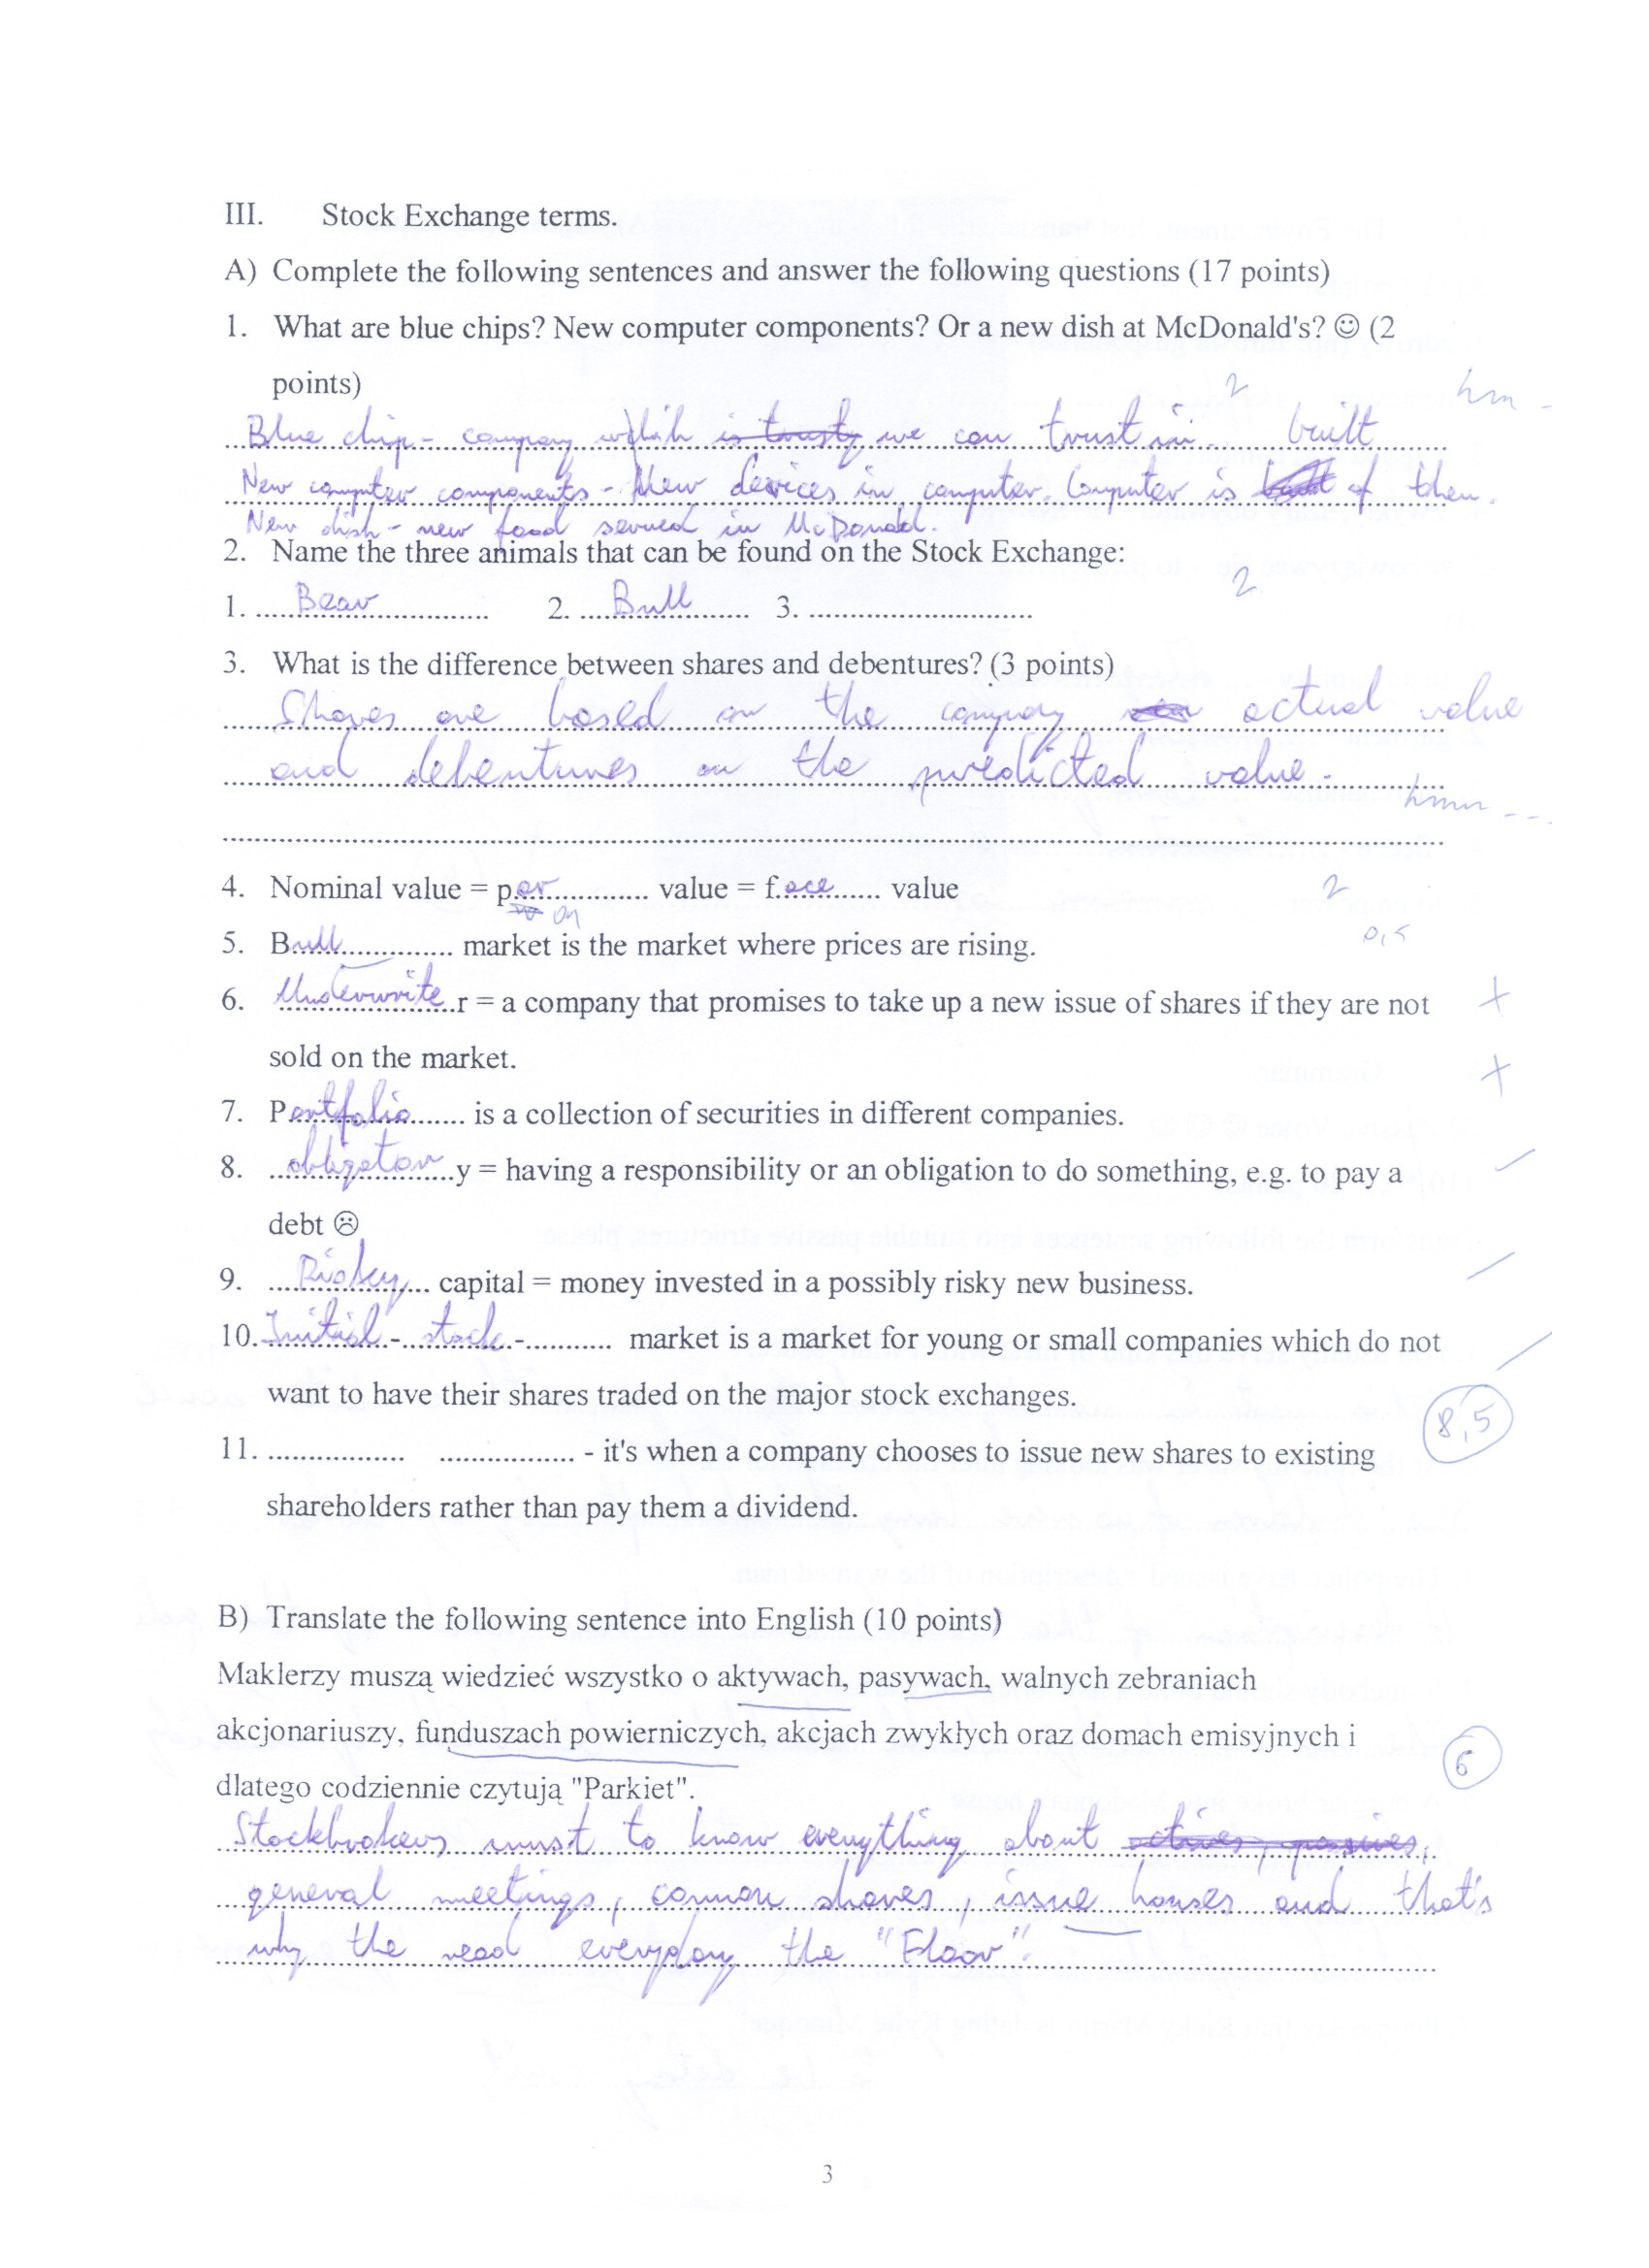 III. Stock Exchange terms.
A) Complete the following sentences and answer the following questions (17 points)
1. What are blue chips? New computer components? Or a new dish at McDonald's? ☺ (2
points)
2 hm -
Blue chip - company which is trusty we can trust in. built
New computer components - New devices in computer. Computer is built of them.
New dish - new food served in McDonald.
2. Name the three animals that can be found on the Stock Exchange:
1. ....Bear.... 2. ....Bull.... 3. ........ 2
3. What is the difference between shares and debentures? (3 points)
Shares are based on the company actual value
and debentures on the predicted value.
hmm ---
4. Nominal value = p.ar........ value = f.ace...... value 2
5. Bull........ market is the market where prices are rising. 0,5
6. Underwrite.r = a company that promises to take up a new issue of shares if they are not +
sold on the market.
7. Portfolio...... is a collection of securities in different companies. +
8. ..obligator..y = having a responsibility or an obligation to do something, e.g. to pay a
debt ☹
9. ....Risky... capital = money invested in a possibly risky new business.
10. Initial - stock -.......... market is a market for young or small companies which do not
want to have their shares traded on the major stock exchanges.
8,5
11. ................ ................ - it's when a company chooses to issue new shares to existing
shareholders rather than pay them a dividend.
B) Translate the following sentence into English (10 points)
Maklerzy muszą wiedzieć wszystko o aktywach, pasywach, walnych zebraniach
akcjonariuszy, funduszach powierniczych, akcjach zwykłych oraz domach emisyjnych i
6
dlatego codziennie czytują "Parkiet".
Stockbrokers must to know everything about actives, passives,
general meetings, common shares, issue houses and that's
why the read everyday the "Floor".
3